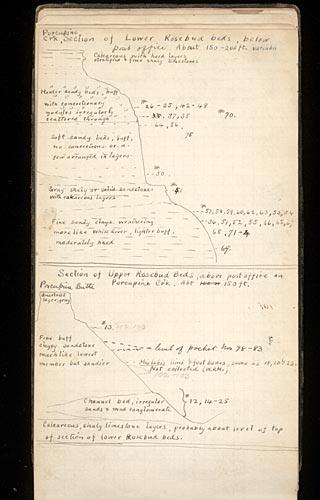 Porcupine
Crk, Section of Lower Rosebud beds, below
post office. About 150-200 ft. vertical
Calcareous with hard layers
Harder sandy beds, buff
with concretionary
nodules irregularly
scattered through
26-25, 42-48
35, 37, 38
70.
64, 56,
75
Soft sandy beds, buff,
no concretions or a
few arranged in layers
50
Gray shaly or solid sandstone
with calcareous layers
51
Fine sandy clays weathering
more like White river, lighter buff,
moderately hard
68, 71-4
69.
Section of Upper Rosebud Beds, above post office on
Porcupine Butte
Porcupine Crk. Abt 150 ft.
13.
Fine buff
clayey sandstone
much like lowest
member but sandier
= level of pocket from 78-83
limb & foot bones, same as 18, 20 & 23.
Not collected (W.D.M.)
Channel bed, irregular
sands & mud conglomerate
12, 14-25
Calcareous, shaly limestone layers, probably about level of top
of section of lower Rosebud beds.